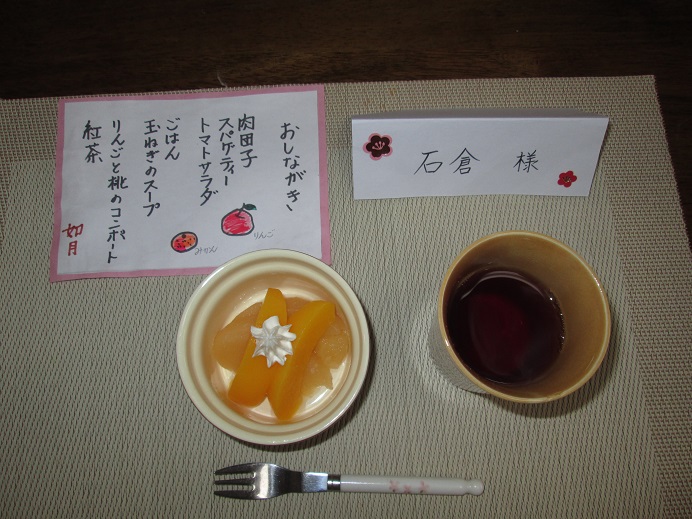 おしながき
肉団子
スパゲティー
トマトサラダ
ごはん
玉ねぎのスープ
りんごと桃のコンポート
紅茶
如月
りんご
みかん
石倉 様